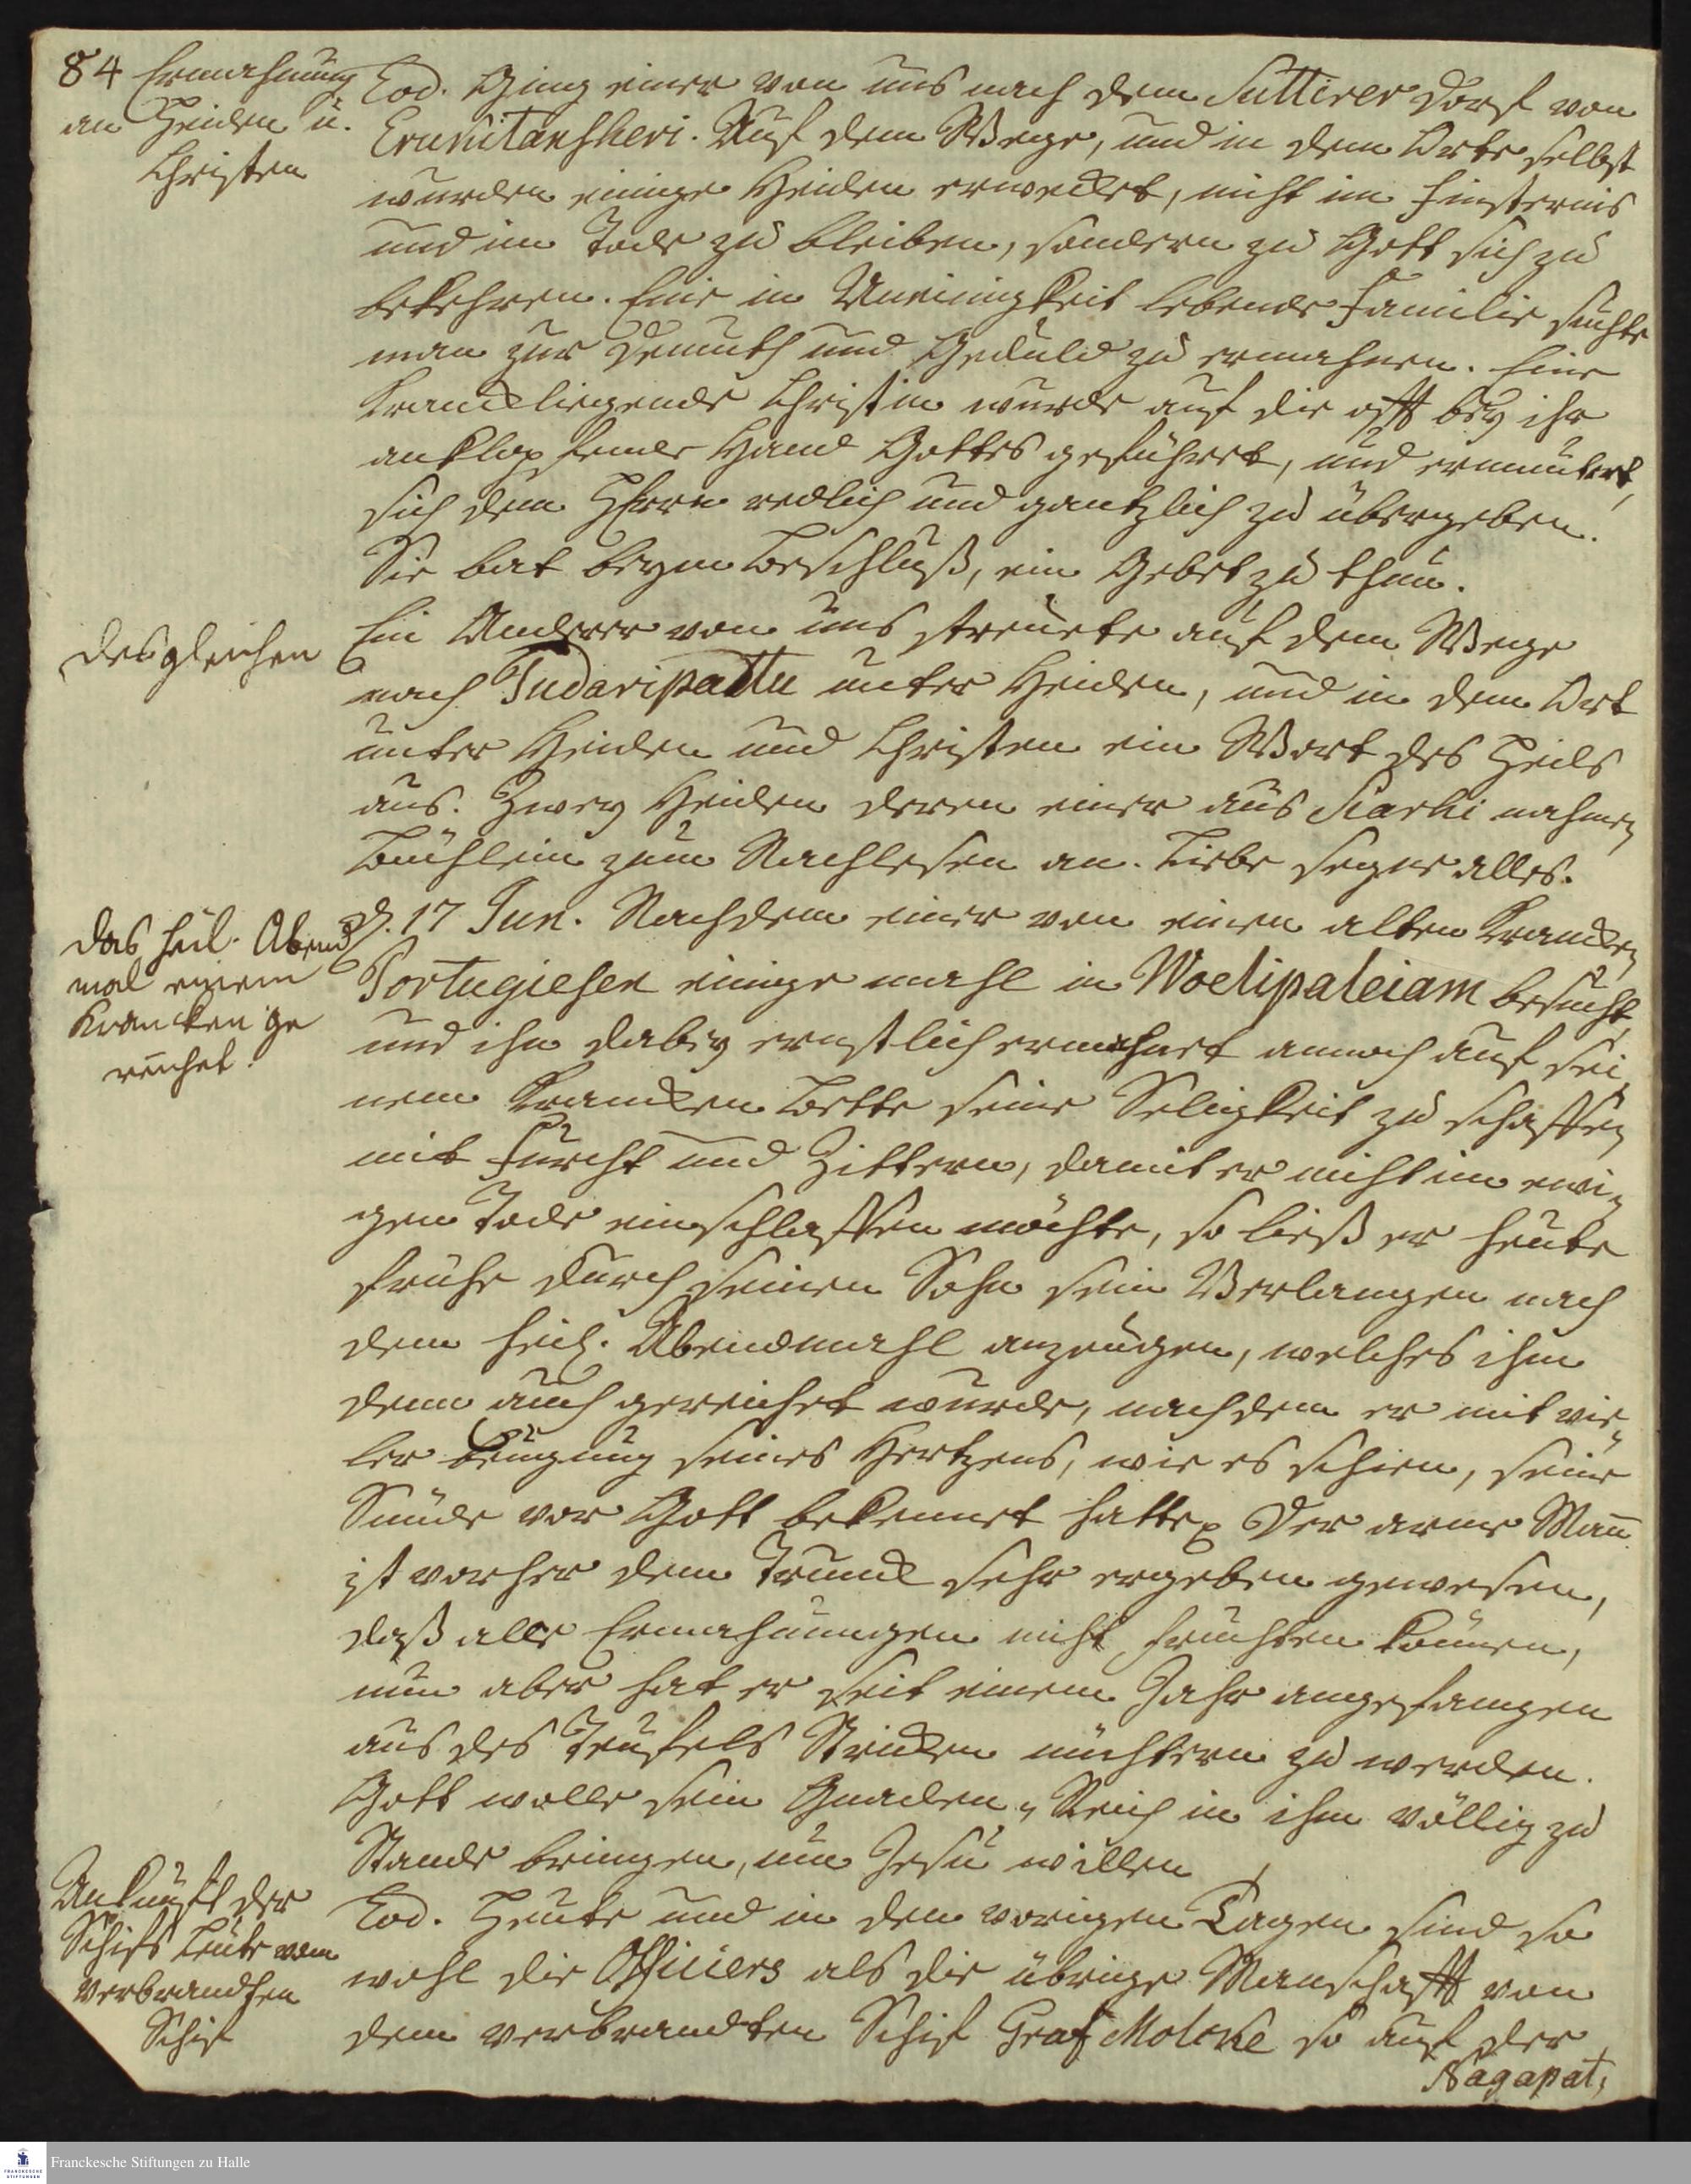 84 Ermahnung
an Heiden u.
Christen
Eod. Ging einer von uns nach dem Suttirer Dorf von
Erukitansheri. Auf dem Wege, und in dem Orte selbst
wurden einige Heiden erwecket, nicht im Finsternis
und im Tode zu bleiben, sondern zu Gott sich zu
bekehren. Eine in Uneinigkeit lebende Familie suchte
man zur Demuth und Geduld zu ermahnen. Eine
kranckliegende Christin wurde auf die offt bey ihr
anklopfende Hand Gottes geführet, und ermuntert,
sich dem HErrn redlich und gäntzlich zu übergeben.
Sie bat beym Beschluß, ein Gebet zu thun.
desgleichen
Ein Anderer von uns streuete auf dem Wege
nach Tudaripattu unter Heiden, und in dem Ort
unter Heiden und Christen ein Wort des Heils
aus. Zwey Heiden deren einer aus Siarhi nahmen
Büchlein zum Nachlesen an. Liebe segne alles.
das heil. Abend
mal einem
Krancken ge
reichet.
d. 17 Jun. Nachdem einer von einen alten Krancken
Portugiesen einige mahl in Woelipaleiam besucht,
und ihn dabey ernstlich ermahnet annoch auf sei-
nem Krancken Bette seine Seligkeit zu schaffen
mit Furcht und Zittern, damit er nicht im ewi-
gen Tode einschlaffen möchte, so ließ er heute
frühe durch seinen Sohn sein Verlangen nach
dem heil. Abendmahl anzeigen, welches ihm
denn auch gereichet wurde, nachdem er mit vie-
ler Beugung seines Hertzens, wie es schien, seine
Sünde vor Gott bekennet hatte. Der arme Mañ
ist vorher dem Trunck sehr ergeben gewesen,
daß alle Ermahnungen nicht fruchten können,
nun aber hat er seit einem Jahr angefangen
aus des Teufels Stricken nüchtern zu werden.
Gott wolle sein Gnaden-Reich in ihm völlig zu
Stande bringen, um Jesu willen
Ankunft der
Schifs Leute vom
verbrandten
Schif
Eod. Heute und in den vorigen Tagen sind so
wohl die Officiers als die übrige Manschafft von
dem verbrandten Schif Graf Moltke so auf der
Nagapat,
Franckesche Stiftungen zu Halle